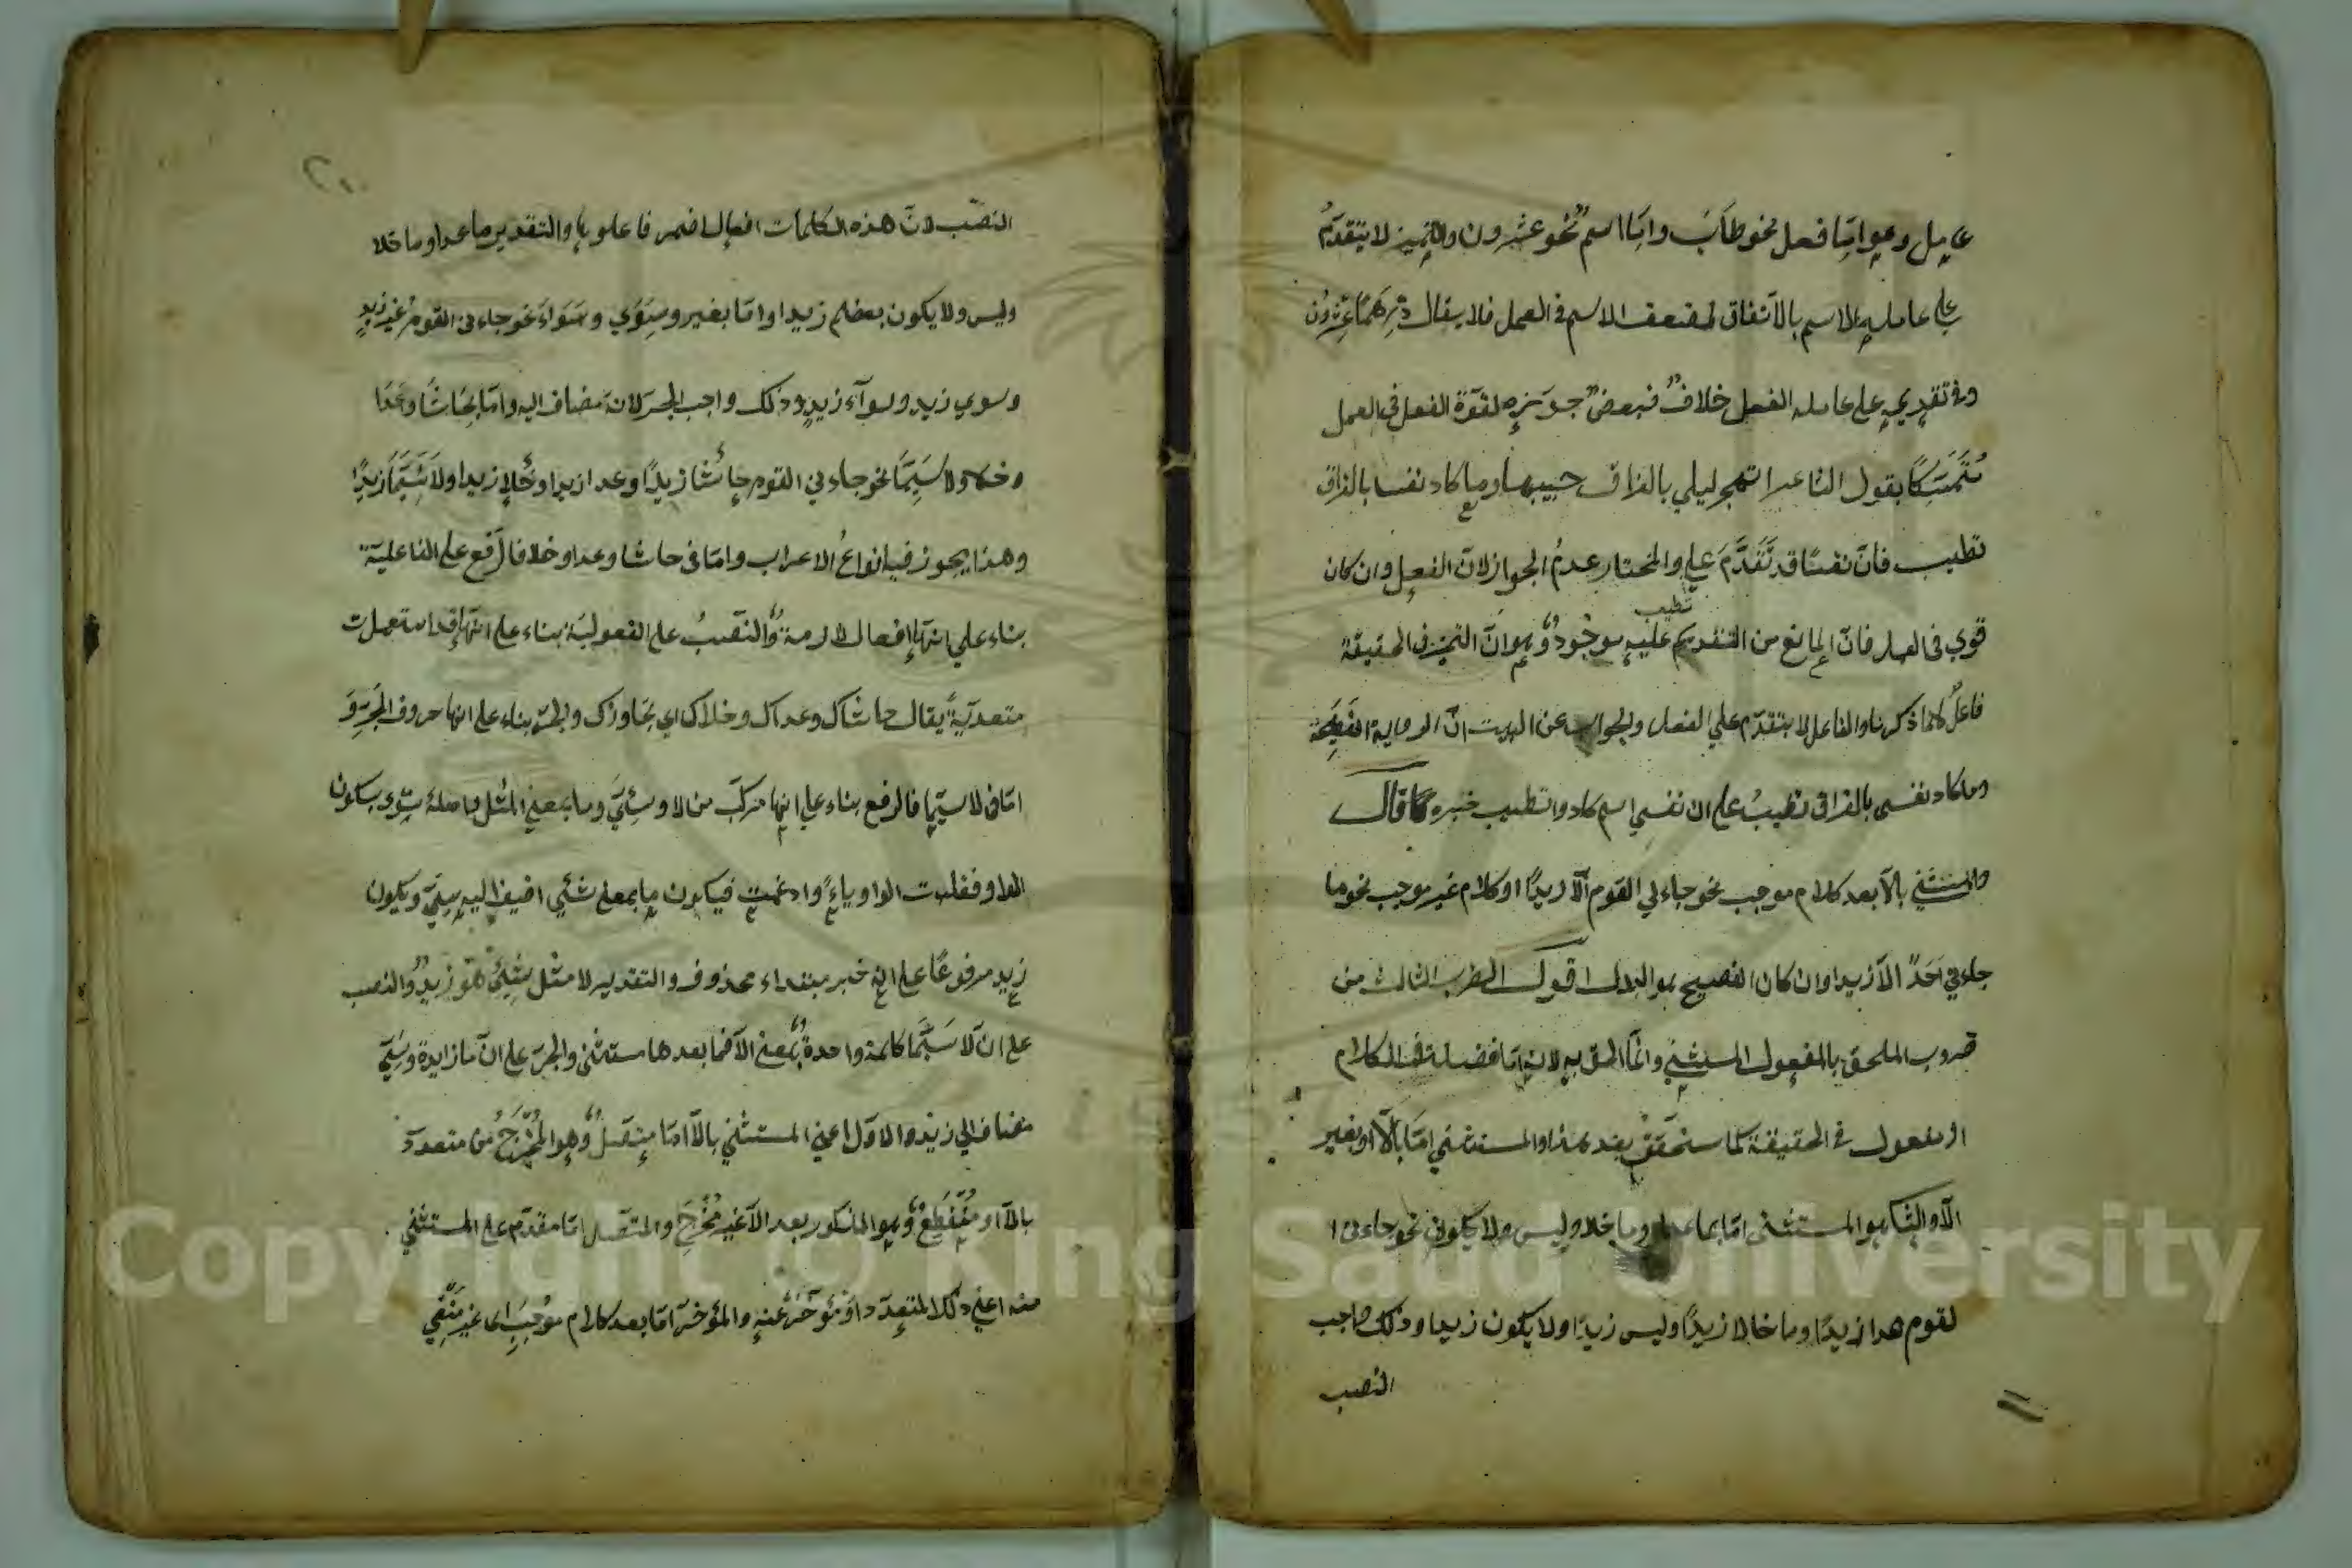 عامل وهو اما فعل نحو طاب واما اسم نحو عشرون والتميز لا يتقدم
على عامله الاسم بالاتفاق لضعف الاسم في العمل فلا يقال درهما عشرون
وفي تقديمه على عامله الفعل خلاف فبعض جوزه لقوة الفعل في العمل
متمسكا بقول الشاعر اتهجر ليلي بالفراق حبيبها وما كاد نفسا بالفراق
تطيب فان نفسا قد تقدم علي والمختار عدم الجواز لان الفعل وان كان
تطيب
قوي في العمل فان المانع من التقديم عليه موجود وهو ان التميز في الحقيقة
فاعل كما ذكرنا والفاعل لا يتقدم علي الفعل والجواب عن البيت ان الرواية الفصيحة
وما كاد نفسي بالفراق تطيب على ان نفسي اسم كاد وتطيب خبره قال
والمستثني بالا بعد كلام موجب نحو جاءني القوم الا زيدا او كلام غير موجب نحو ما
جاءني احد الا زيدا وان كان الفصيح هو البدل اقول الضرب الثالث من
ضروب الملحق بالمفعول المستثني وانما الحق به لانه اما فضلة في الكلام
او مفعول في الحقيقة كما ستحقق بعد هذا والمستثني اما بالا او بغير
الا والثاني هو المستثنى اما بما عدا وما خلا وليس ولا يكون نحو جاءني ا
لقوم عدا زيدا وما خلا زيدا وليس زيدا ولا يكون زيدا وذلك واجب
النصب
٢٠
النصب لان هذه الكلمات افعال اضمر فاعلوها والتقدير ما عدا وما خلا
وليس ولا يكون بعضهم زيدا واما بغير وسوي وسواء نحو جاءني القوم غير زيد
وسوي زيد وسوآء زيد وذلك واجب الجر لانه مضاف اليه واما بحاشا وعدا
وخلا ولا سيما نحو جاءني القوم حاشا زيدا وعدا زيدا وخلا زيدا ولا سيما زيدا
وهذا يجوز فيه انواع الاعراب واما في حاشا وعدا وخلا فالرفع على الفاعلية
بناء علي انها افعال لازمة والنصب على المفعولية بناء على انها قد استعملت
متعدية يقال حاشاك وعداك وخلاك اي تجاوزك والجر بناء على انها حروف الجر و
اما في لا سيما فالرفع بناء على انها مركب من لا وسي وما بمعني المثل واصله سوي بسكون
الواو فقلبت الواو ياء وادغمت فيكون ما بمعنى شئي اضيف اليه سي ويكون
زيد مرفوعا على انه خبر مبتداء محذوف والتقدير لا مثل شئي هو زيد والنصب
على ان لا سيما كلمة واحدة بمعنى الا فما بعدها مستثنى والجر على ان ما زايدة وسي
مضاف الي زيد والاول اعني المستثني بالا اما متصل وهو المخرج من متعدد
بالا او منقطع وهو المذكور بعد الا غير مخرج والمتصل اما مقدم على المستثني
منه اعني ذلك المتعدد او مؤخر عنه والمؤخر اما بعد كلام موجب اي غير منفي